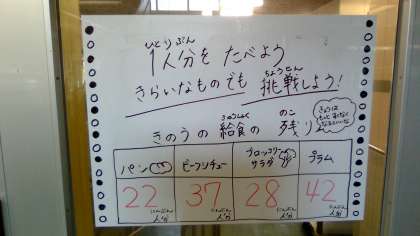 ひとり ぶん
1人分を たべよう
ちょうせん
きらいなものでも 挑戦しよう!
きゅうしょく のこ
きのうの 給食の 残り
きょうは
パン ビーフシチュー ブロッコリーサラダ プラム
22 37 28 42
にんぶん にんぶん にんぶん にんぶん
人分 人分 人分 人分